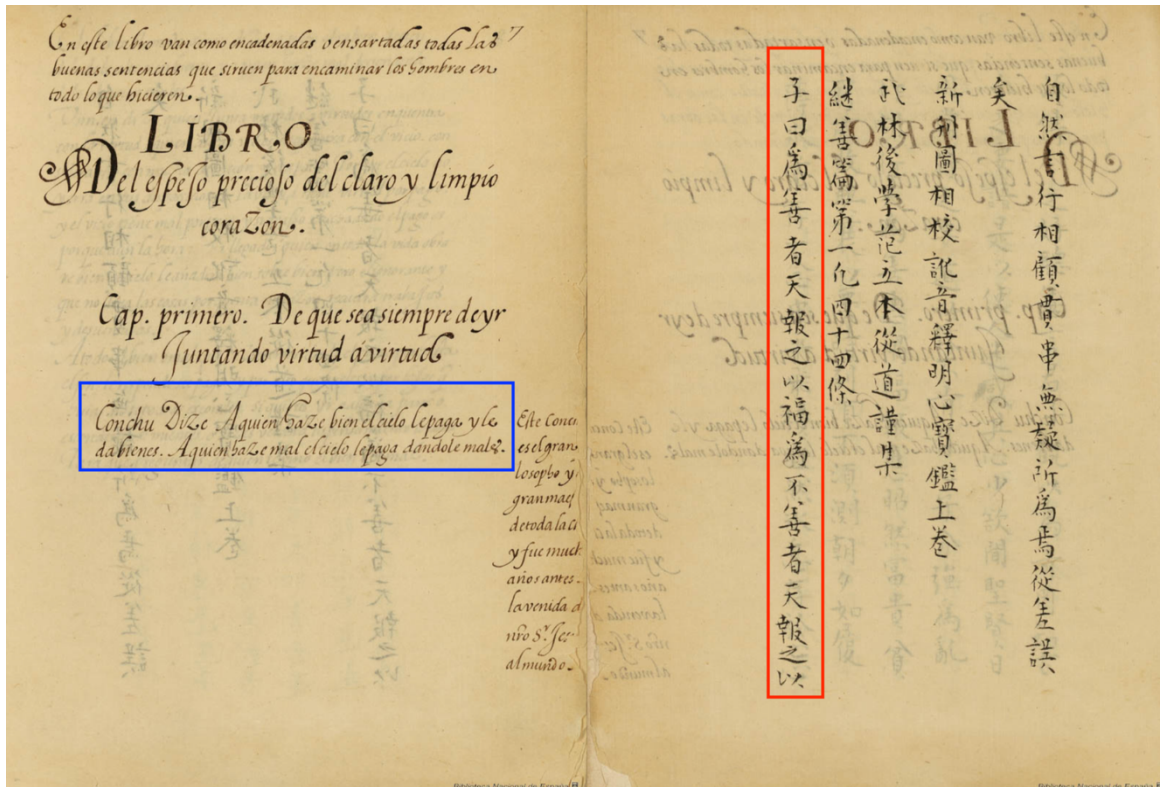 En este libro van como encadenadas o ensartadas todas las 7
buenas sentencias que siruen para encaminar los hombres en
todo lo que hicieren.
LIBRO
Del espejo precioso del claro y limpio
corazon.
Cap. primero. De que sea siempre de yr
Juntando virtud a virtud
Conchu Dize A quien haze bien el cielo le paga y le
da bienes. A quien haze mal el cielo le paga dandole males.
Este Conc
es el gran
losopho y
gran maes
de toda la ci
y fue much
años antes.
la venida d
nro Sr. Jes
al mundo.
自然言行相顧貫串無疑所爲焉從差誤
矣
新刊圖相校訛音釋明心寶鑑上卷
武林後學范立本從道謹集
繼善篇第一凡四十四條
子曰爲善者天報之以福爲不善者天報之以
Biblioteca Nacional de España
Biblioteca Nacional de España